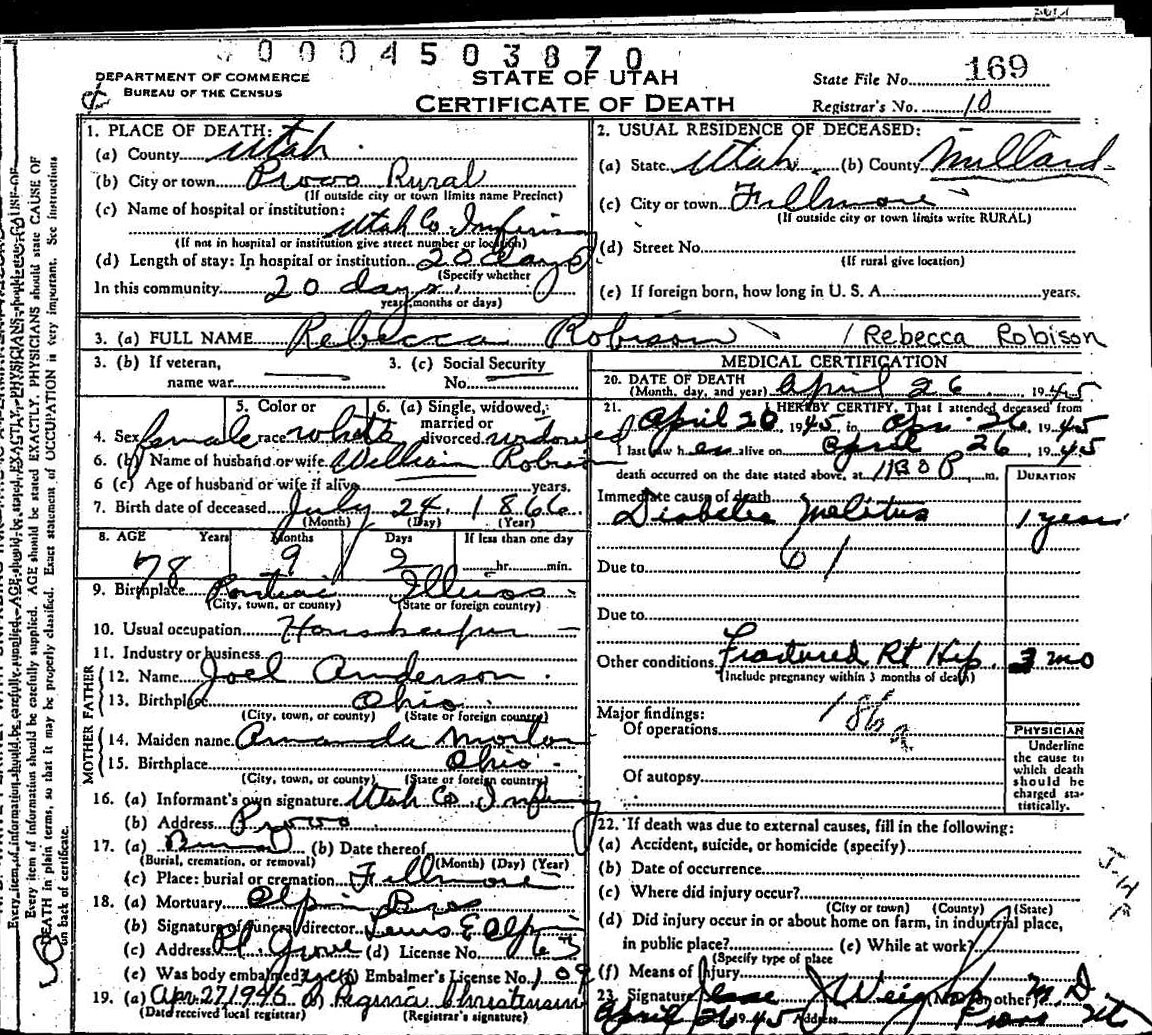 0004503870
DEPARTMENT OF COMMERCE
BUREAU OF THE CENSUS
STATE OF UTAH
CERTIFICATE OF DEATH
State File No. 169
Registrar's No. 10
1. PLACE OF DEATH:
(a) County Utah
(b) City or town Provo Rural
(If outside city or town limits name Precinct)
(c) Name of hospital or institution:
Utah Co Infirm
(If not in hospital or institution give street number or location)
(d) Length of stay: In hospital or institution 20 days
(Specify whether
In this community 20 days.
years, months or days)
2. USUAL RESIDENCE OF DECEASED:
(a) State Utah (b) County Millard
(c) City or town Fillmore
(If outside city or town limits write RURAL)
(d) Street No.
(If rural give location)
(e) If foreign born, how long in U. S. A. years.
3. (a) FULL NAME Rebecca Robison / Rebecca Robison
3. (b) If veteran,
name war
3. (c) Social Security
No.
4. Sex female
5. Color or
race white
6. (a) Single, widowed,
married or
divorced widowed
6. (b) Name of husband or wife William Robison
6 (c) Age of husband or wife if alive years.
7. Birth date of deceased July 24 1866
(Month) (Day) (Year)
8. AGE Years Months Days If less than one day
78 9 2 hr. min.
9. Birthplace Pontiac Illinos
(City, town, or county) (State or foreign country)
10. Usual occupation Housekeeper
11. Industry or business
FATHER
12. Name Joel Anderson
13. Birthplace Ohio
(City, town, or county) (State or foreign country)
MOTHER
14. Maiden name Amanda Morton
15. Birthplace Ohio
(City, town, or county) (State or foreign country)
16. (a) Informant's own signature Utah Co Infirm
(b) Address Provo
17. (a) Burial (b) Date thereof
(Burial, cremation, or removal) (Month) (Day) (Year)
(c) Place: burial or cremation Fillmore
18. (a) Mortuary Olpin Bros
(b) Signature of funeral director Lewis E Olpin
(c) Address Pl. Grove (d) License No. 63
(e) Was body embalmed? yes (f) Embalmer's License No. 109
19. (a) Apr. 27 1945 (b) Regina Christensen
(Date received local registrar) (Registrar's signature)
MEDICAL CERTIFICATION
20. DATE OF DEATH
(Month, day, and year) April 26 1945
21. I HEREBY CERTIFY, That I attended deceased from
April 20, 1945, to Apr. 26, 1945
I last saw her alive on April 26, 1945
death occurred on the date stated above, at 1130 P. m.
DURATION
Immediate cause of death
Diabetis Melitus 1 years
61
Due to
Due to
Other conditions Fractured Rt Hip. 3 mo
(Include pregnancy within 3 months of death)
Major findings: 186a
Of operations
Of autopsy
PHYSICIAN
Underline
the cause to
which death
should be
charged sta-
tistically.
22. If death was due to external causes, fill in the following:
(a) Accident, suicide, or homicide (specify)
(b) Date of occurrence
(c) Where did injury occur?
(City or town) (County) (State)
(d) Did injury occur in or about home on farm, in industrial place,
in public place? (e) While at work?
(Specify type of place
(f) Means of Injury
23. Signature Jesse J Weight (M.D. or other) M.D
April 26 1945 Address Provo Ut
Every item of information should be carefully supplied. AGE should be stated EXACTLY. PHYSICIANS should state CAUSE OF
DEATH in plain terms, so that it may be properly classified. Exact statement of OCCUPATION is very important. See instructions
on back of certificate.